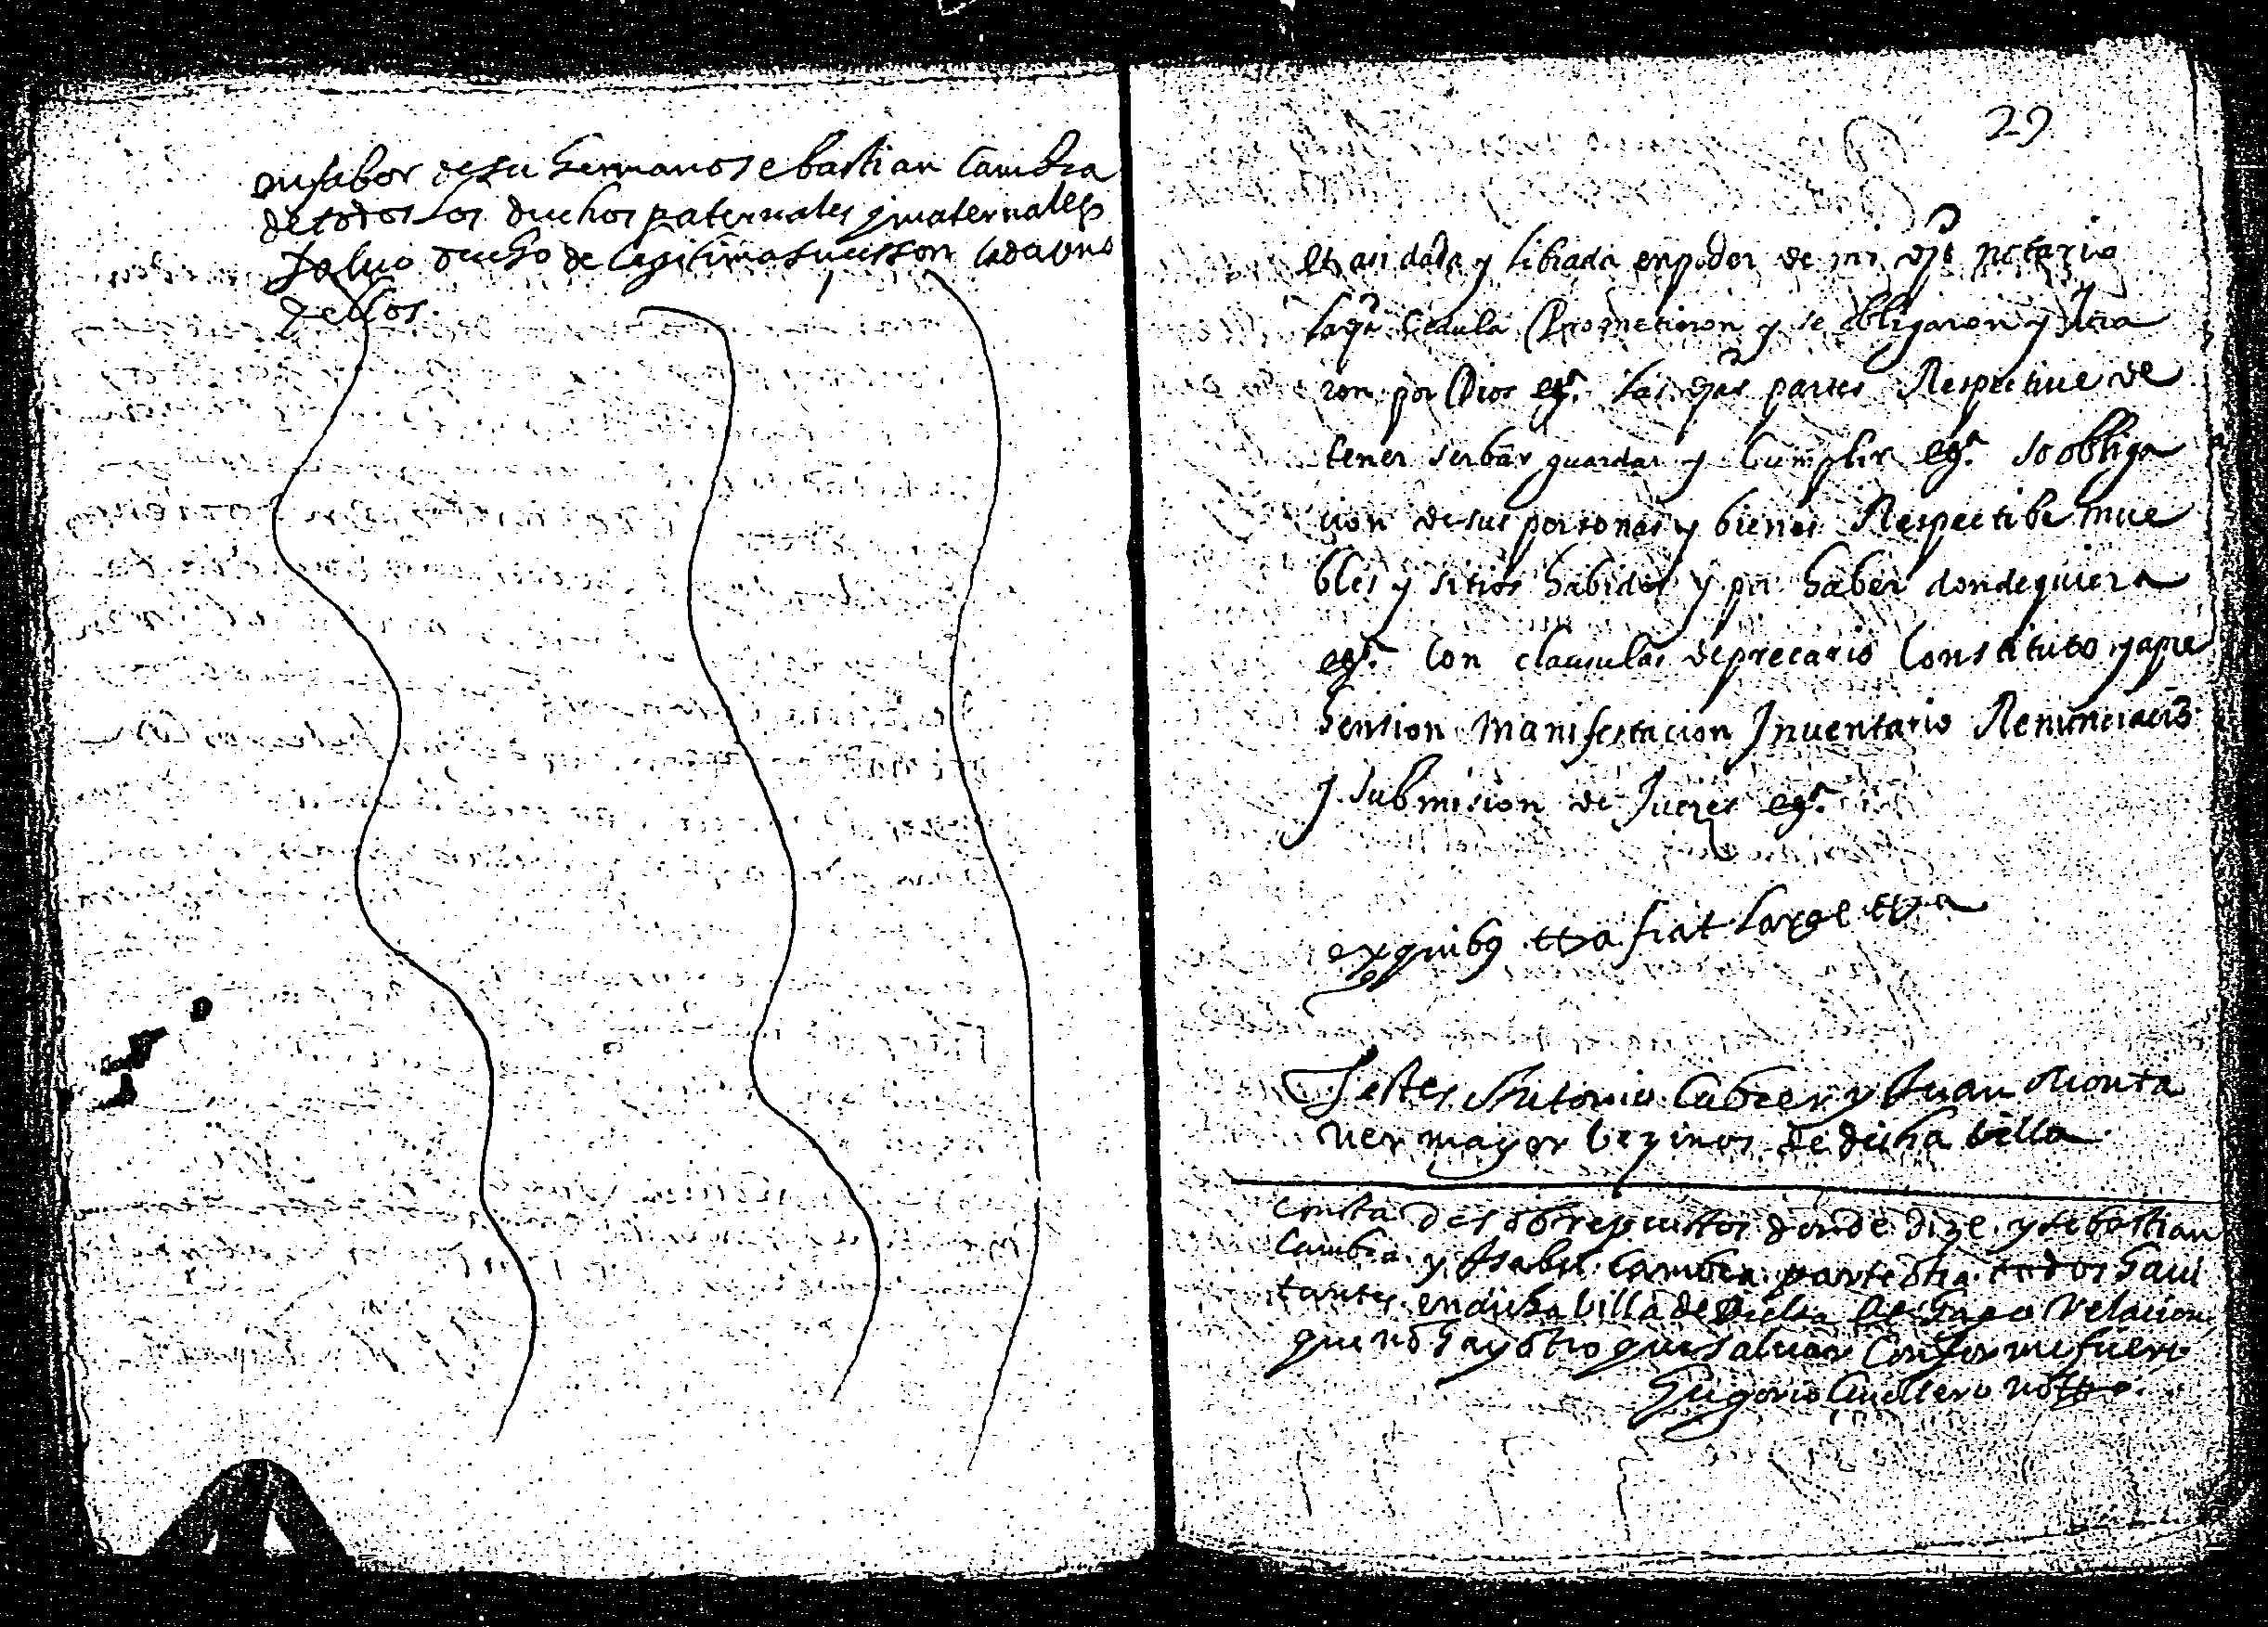 en fabor de su hermano sebastian Cambra
de todos los drechos paternales y maternales
salvo drecho de legitima sucission cada uno
dellos.
29
Et asi dada y librada en poder de mi dho notario
la qe Cedula Prometieron y se obligaron y Jura
ron por Dios etª. las dhas partes Respective de
tener serbar guardar y Cumplir etª. so obliga
cion de sus personas y bienes Respectibe mue
bles y sitios habidos y por haber dondequiera
etª. Con clausulas de precario Constituto y apre
hension Manifestacion Inventario Renunciacio
y submision de Juezes etª.
ex quibus ttra fiat large ttra
Testes Antonio Cabrer y Juan Monta
ner mayor bezinos de dicha billa
Consta de sobrepuestos donde dize y sebastian
Cambra y Isabel Cambra parte otra todos havi
tantes en dicha billa de et hago relacion
que no hay otro que salvar Conforme fuero
Gregorio Cavellero notº